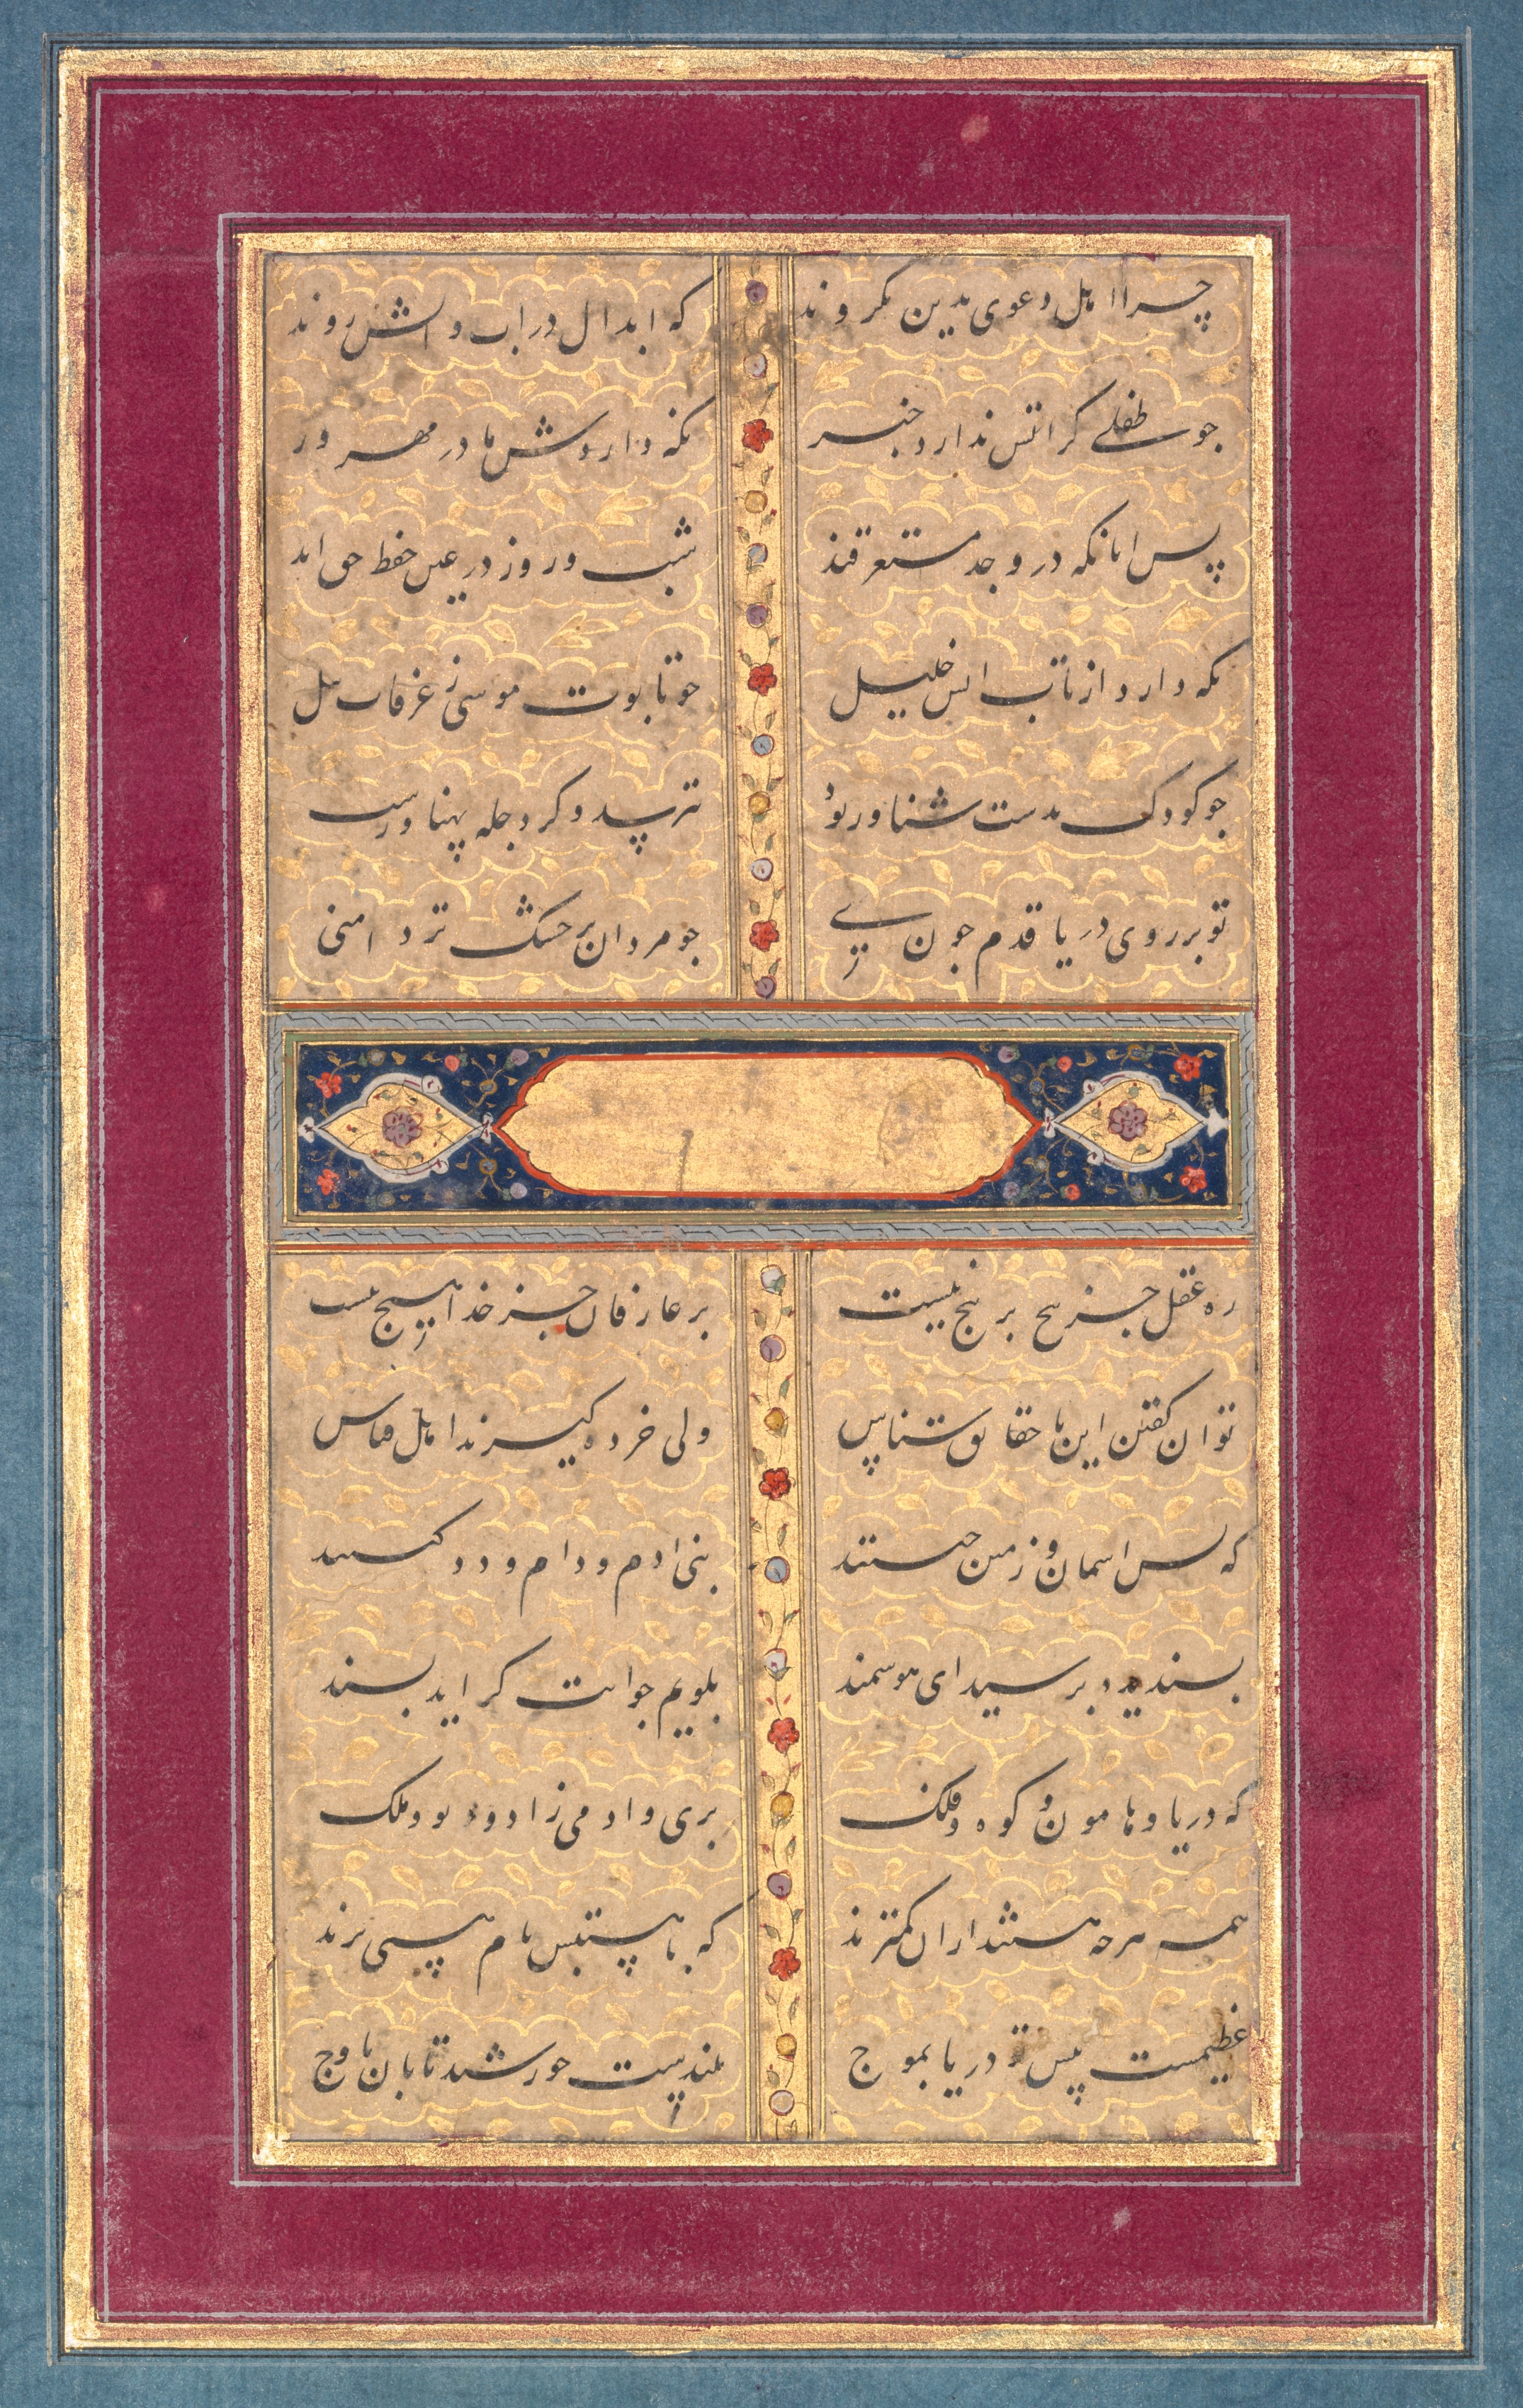 چرا اهل دعوی بدین نکروند
که ابدال در اب و اتش روند
جو طفلی کز اتش ندارد خبر
نکه داردش مادر مهرور
پس انانکه در وجد مستغرقند
شب و روز در عین حفظ حق اند
نکه دارد از تاب اتش خلیل
جو تابوت موسی ز غرقاب نیل
جو کودک بدست شناور بود
نترسد وکر دجله پهناورست
تو بر روی دریا قدم جون زنی
جو مردان که بر خشک تر دامنی
ره عقل جز پیچ بر پیچ نیست
بر عارفان جز خدا هیچ نیست
توان کفتن این با حقایق شناس
ولی خرده کیرند اهل قیاس
که پس اسمان و زمین جیستند
بنی ادم و دام و دد کیستند
پسندیده برسیدی ای هوشمند
بکویم جوابت کر اید بسند
که دریا و هامون و کوه و فلک
بری و ادمی زاد و دیو و ملک
همه هرجه هستند ازان کمترند
که با هستیش نام هستی برند
عظیمست پیش تو دریا بموج
بلندست خورشید تابان باوج